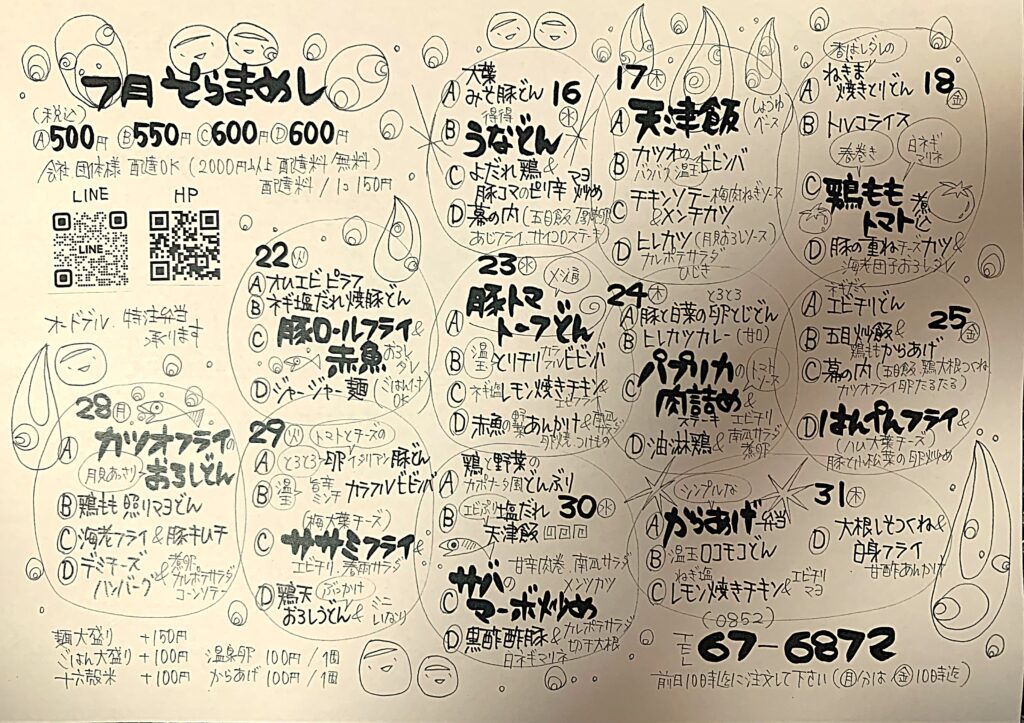 7月 そらまめし
(税込)
Ⓐ500円 Ⓑ550円 Ⓒ600円 Ⓓ600円
会社 団体様 配達OK (2000円以上 配達料/無料)
配達料/1コ150円
LINE HP
LINE
オードブル、特注弁当
承ります
16 ㊌
A 大葉
みそ豚どん
B 得得
うなどん
C よだれ鶏&
豚コマのピリ辛マヨ炒め
D 幕の内(五目飯
あじフライ、サイコロステーキ)
17 ㊍
A 天津飯 (しょうゆ
ベース)
B カツオの
温玉ビビンバ
C チキンソテー梅肉ねぎソース
&メンチカツ
D ヒレカツ(月見おろしソース)
カルボテサラダ
ひじき
18 ㊎
香ばしダレの
A ねぎま
焼きとりどん
B トルコライス
春巻き 白ネギマリネ
C 鶏もも
トマト煮込
D 豚の重ねチーズカツ&
海老団子おろしダレ
22 ㊋
A オムエビピラフ
B ネギ塩だれ焼豚どん
C 豚ロールフライ&
赤魚おろしダレ
D ジャージャー麺 (ごはん付
OK)
23 ㊌
A 豚トマ
トーフどん
B 温玉 とりチリカラフルビビンバ
C ネギ塩レモン焼きチキン&
エビフライ
D 赤魚の野菜あんかけ&南瓜サラダ
卵焼、つけもの
24 ㊍
A とろとろ
豚と白菜の卵とじどん
B ヒレカツカレー(甘口)
C パプリカの トマトソース
肉詰め&
ステーキ エビチリ
D 油淋鶏& 南瓜サラダ
煮卵
25 ㊎
A エビチリどん
B 五目炒飯&
鶏ももからあげ
C 幕の内(五目飯、鶏大根つくね、
カツオフライ卵たるたる)
D はんぺんフライ&
(ハム大葉チーズ)
豚と小松菜の卵炒め
28 ㊊
A カツオフライの
月見あっさり おろしどん
B 鶏もも照りマヨどん
C 海老フライ&豚キムチ
D デミチーズ
ハンバーグ& 煮卵
カルボテサラダ
コーンソテー
29 ㊋
トマトとチーズの
A とろとろ卵イタリアン豚どん
B 温玉 旨辛
ミンチ カラフルビビンバ
(梅大葉チーズ)
C ササミフライ&
エビチリ、春雨サラダ
D 鶏天 ぶっかけ
おろしうどん& ミニ
いなり
30 ㊌
A 鶏と野菜の
カポナータ風どんぶり
B エビぷり塩だれ
天津飯
甘辛肉巻、南瓜サラダ
メンチカツ
C サバの
マーボ炒め
D 黒酢酢豚& カルボテサラダ
切干大根
白ネギマリネ
31 ㊍
シンプルな
A からあげ弁当
B 温玉ロコモコどん
C ねぎ塩
レモン焼きチキン& エビチリ
マヨ
D 大根しそつくね&
白身フライ
甘酢あんかけ
麺大盛り +150円
ごはん大盛り +100円 温泉卵 100円/1個
十六穀米 +100円 からあげ 100円/1個
(0852)
TEL 67-6872
前日10時迄に注文して下さい(㊊分は㊎10時迄)